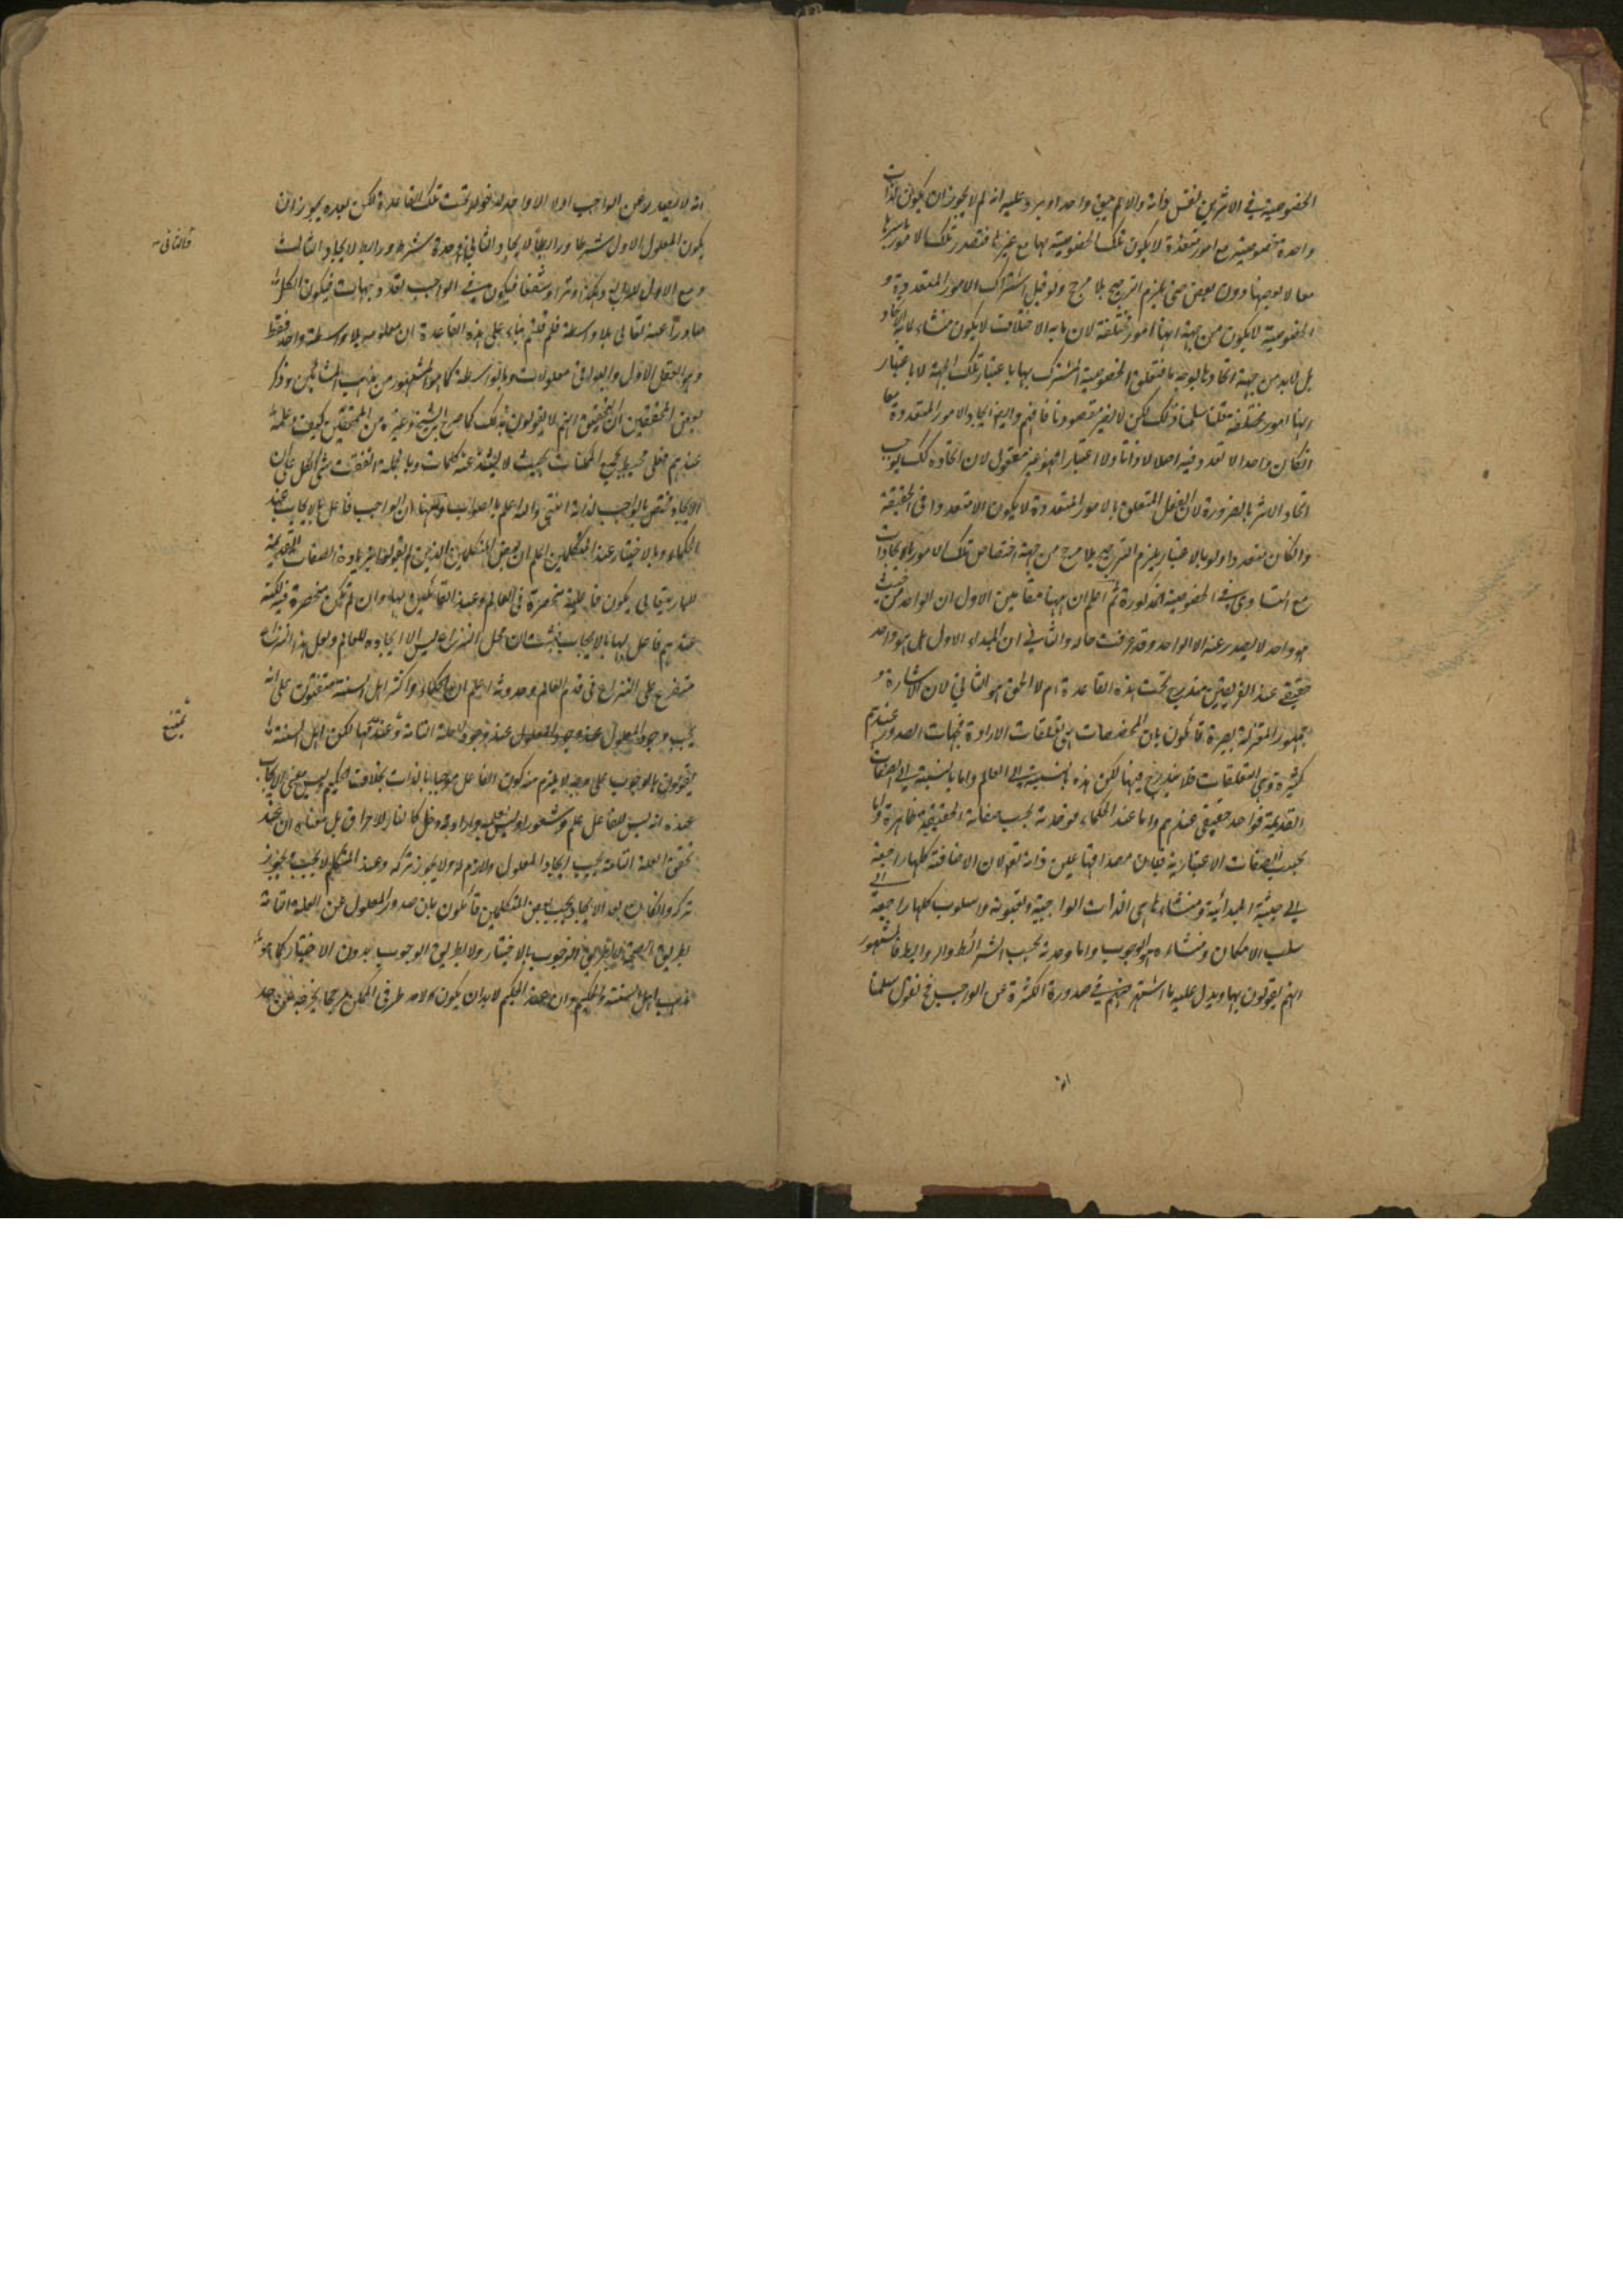 الخصوصية في الاثرين لنفس ذاته والا لم يبق واحدا ويرد عليه انه لم لا يجوز ان يكون لذات
واحدة خصوصية مع امور متعددة لا يكون تلك الخصوصية لها مع غيرها فتصدر تلك الامور باسرها
معا لا بعضها دون بعض حتى يلزم الترجيح بلا مرجح ولو قيل اشتراك الامور المتعددة و
الخصوصية لا يكون من جهة انها امور مختلفة لان ما به الاختلاف لا يكون منشاء لما به الاتحاد
بل لابد من جهة اتحاد بالوجه ما فتعلق الخصوصية المشترك بها باعتبار تلك الجهة لا باعتبار
انها امور مختلفة قلنا سلمنا ذلك لكن لا يضر مقصودنا فافهم وايضا ايجاد الامور المتعددة معا
انكان واحدا لا تعدد فيه اصلا لا ذاتا ولا اعتبارا فهو غير معقول لان اتحاده كك يوجب
اتحاد الاثر بالضرورة لان الفعل المتعلق بالامور المتعددة لا يكون الا متعددا في الحقيقة
وانكان متعددا ولو بالاعتبار يلزم الترجيح بلا مرجح من جهة اختصاص تلك الامور بالايجادات
مع التساوي في الخصوصية المذكورة ثم اعلم ان ههنا مقامين الاول ان الواحد من حيث
هو واحد لا يصدر عنه الا الواحد وقد عرفت حاله والثاني ان المبداء الاول هل هو واحد
حقيقي عند الفريقين مندرج تحت هذه القاعدة ام لا الحق هو الثاني لان الاشاعرة و
جمهور المعتزلة بصرة قائلون بان المخصصات هي تعلقات الارادة فجهات الصدور عندهم
كثيرة وهي التعلقات فلا يندرج فيها لكن هذه بالنسبة الى العالم واما بالنسبة الى الصفات
القديمة فواحد حقيقي عندهم واما عند الحكماء فوحدته بحسب صفاته الحقيقية ظاهرة واما
بحسب الصفات الاعتبارية فلان مصداقها عين ذاته تعالى لان الاضافة كلها راجعة
الى حيثية المبدائية ومنشاءها هي الذات الواجبية والسلوب كلها راجعة الى
سلب الامكان ومنشاءه هو الوجوب واما وحدته بحسب الشرائط والروابط فالمشهور
انهم يقولون بها ويدل عليه ما اشتهر عنهم في صدورة الكثرة عن الواجب فح نقول سلمنا
انه لا يصدر عن الواجب اولا الا واحد لدخوله تحت تلك القاعدة لكن بعده يجوز ان
يكون المعلول الاول شرطا ورابطا لايجاد الثاني وحده شرط ورابط لايجاد الثالث
والثاني
ومع الاول للرابع وهكذا وترا وشفعا فيكون في الواجب تعدد جهات فيكون الكل
صادرا عنه تعالى بلا واسطة فلم قلتم بناء على هذه القاعدة ان معلوله بلا واسطة واحد فقط
وهو العقل الاول والبواقي معلولات وبالواسطة كما هو المشهور من مذهب المشائين وذكر
بعض المحققين ان التحقيق انهم لا يقولون بذلك كما صرح الشيخ وغيره من المحققين كيف وعلمه
عندهم فعلي محيط بجميع الممكنات بحيث لا يشذ عنه كلمات وبالجملة اتفقت الكل على ان
الايجاد مختص بالواجب لذاته انتهى والله اعلم بالصواب ومنها ان الواجب فاعل بالايجاب عند
الحكماء وبالاختيار عند المتكلمين اعلم ان بعض المتكلمين الذين لم يقولوا بزيادة الصفات القديمة
للباري تعالى يكون فاعلية منحصرة في العالم وعند القائلين بها وان لم تكن منحصرة فيه لكنه
عندهم فاعل لها بالايجاب فثبت ان محل النزاع ليس الا ايجاده للعالم ولعل هذا النزاع
متفرع على النزاع في قدم العالم وحدوثه اعلم ان الحكماء واكثر اهل السنة متفقون على انه
يجب وجود المعلول عند وجود العلة التامة وعند تمامها لكن اهل السنة
يمتنع
يقولون بالوجوب على وجه لا يلزم منه كون الفاعل موجبا بالذات بخلاف الحكيم وليس معنى الايجاب
عنده انه ليس للفاعل علم وشعور وليس لارادته دخل كالنار للاحراق بل معناه ان عند
تحقق العلة التامة يجب ايجاد المعلول ولازم له ولا يجوز تركه وعند المتكلم لا يجب يجوز
تركه وانكان بعد الايجاد يجب بعض المتكلمين قائلون بان صدور المعلول عن العلة التامة
بطريق الصحة لا بطريق الوجوب بالاختيار ولا بطريق الوجوب بدون الاختيار كما هو
مذهب اهل السنة والحكيم وان عند الحكيم لابد ان يكون لاحد طرفي الممكن مرجحا يخرجه عن حد